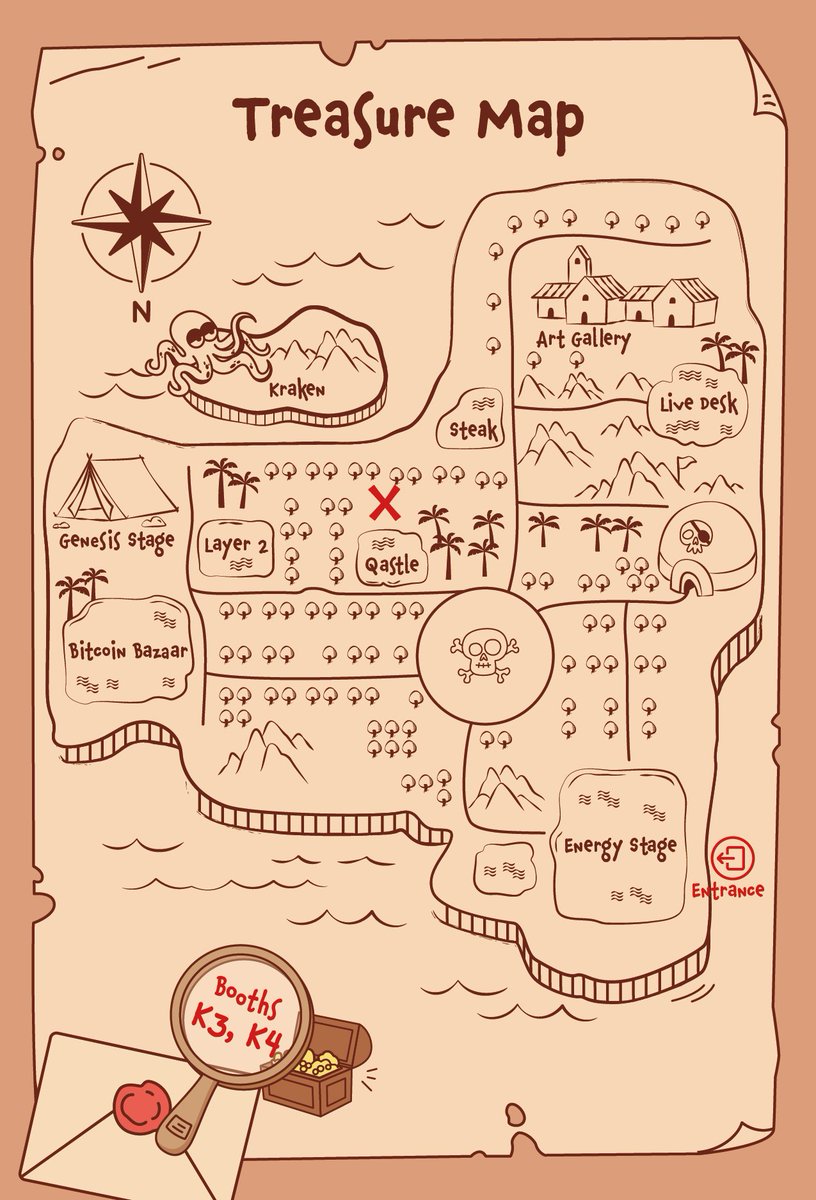 Treasure Map
N
Art Gallery
Kraken
Live Desk
Steak
Genesis Stage
Layer 2
Qastle
Bitcoin Bazaar
Energy Stage
Entrance
Booths
K3, K4